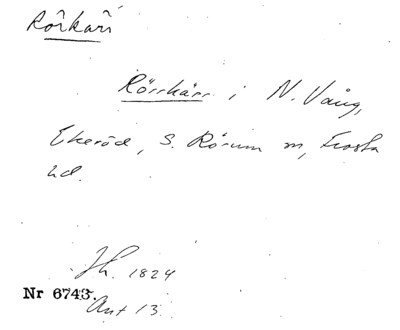 Rörkärr
Rörrkärr i N. Vång,
Ekeröd, S. Rörum sn, Frosta
hd.
Jh. 1824
Nr 6743.
Akt 13